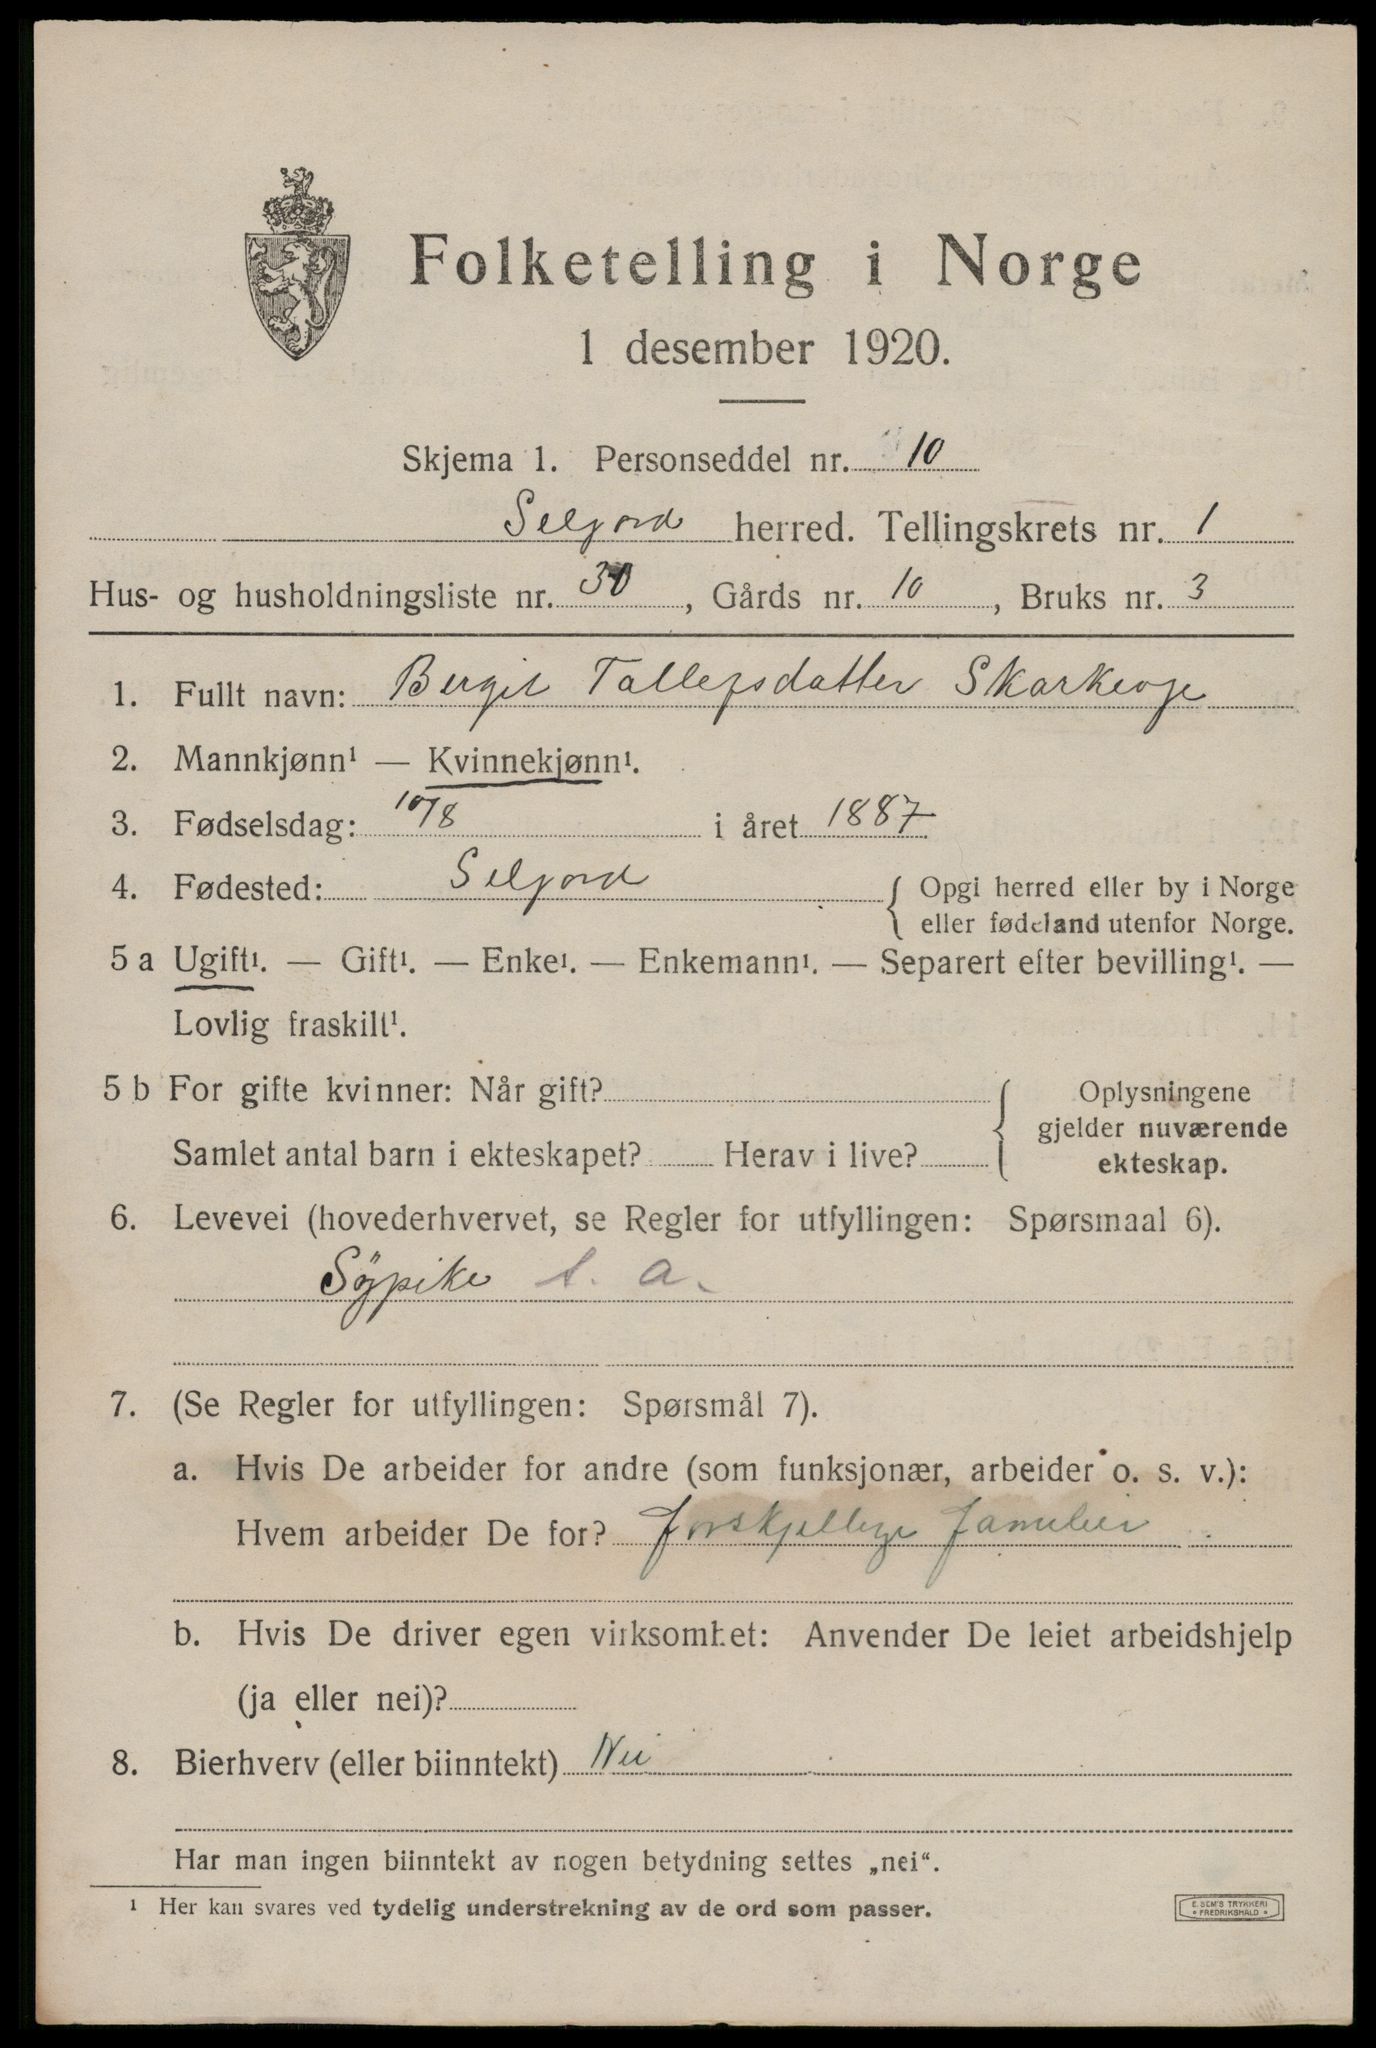 Folketelling i Norge
1 desember 1920.
Skjema 1. Personseddel nr. 10
Seljord herred. Tellingskrets nr. 1
Hus- og husholdningsliste nr. 30, Gårds nr. 10, Bruks nr. 3
1. Fullt navn: Bergit Tallefsdatter
2. Mannkjønn¹ — Kvinnekjønn¹.
3. Fødselsdag: 10/8 i året 1887
4. Fødested: Seljord { Opgi herred eller by i Norge
eller fødeland utenfor Norge.
5 a Ugift¹. — Gift¹. — Enke¹. — Enkemann¹. — Separert efter bevilling¹. —
Lovlig fraskilt¹.
5 b For gifte kvinner: Når gift? { Oplysningene
gjelder nuværende
Samlet antal barn i ekteskapet? Herav i live? ekteskap.
6. Levevei (hovederhvervet, se Regler for utfyllingen: Spørsmaal 6).
Sypike s. a.
7. (Se Regler for utfyllingen: Spørsmål 7).
a. Hvis De arbeider for andre (som funksjonær, arbeider o. s. v.):
Hvem arbeider De for? forskjellige familier
b. Hvis De driver egen virksomhet: Anvender De leiet arbeidshjelp
(ja eller nei)?
8. Bierhverv (eller biinntekt) Nei
Har man ingen biinntekt av nogen betydning settes „nei“.
¹ Her kan svares ved tydelig understrekning av de ord som passer.
E. SEM'S TRYKKERI
* FREDRIKSHALD *